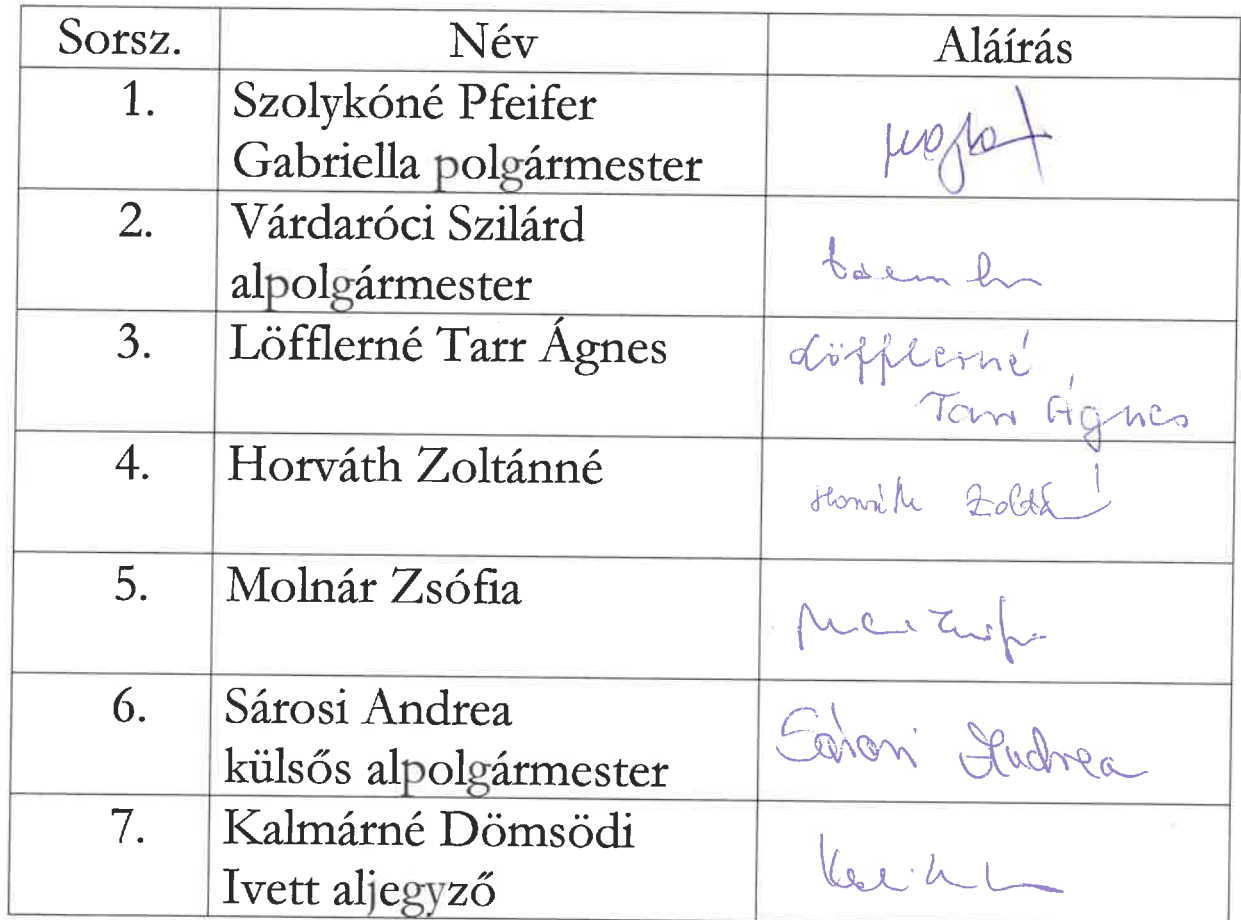 Sorsz. Név Aláírás
1. Szolykóné Pfeifer
Gabriella polgármester
2. Várdaróci Szilárd
alpolgármester
3. Löfflerné Tarr Ágnes Löfflerné
Tarr Ágnes
4. Horváth Zoltánné Horváth Zoltá
5. Molnár Zsófia
6. Sárosi Andrea
külsős alpolgármester Sárosi Andrea
7. Kalmárné Dömsödi
Ivett aljegyző